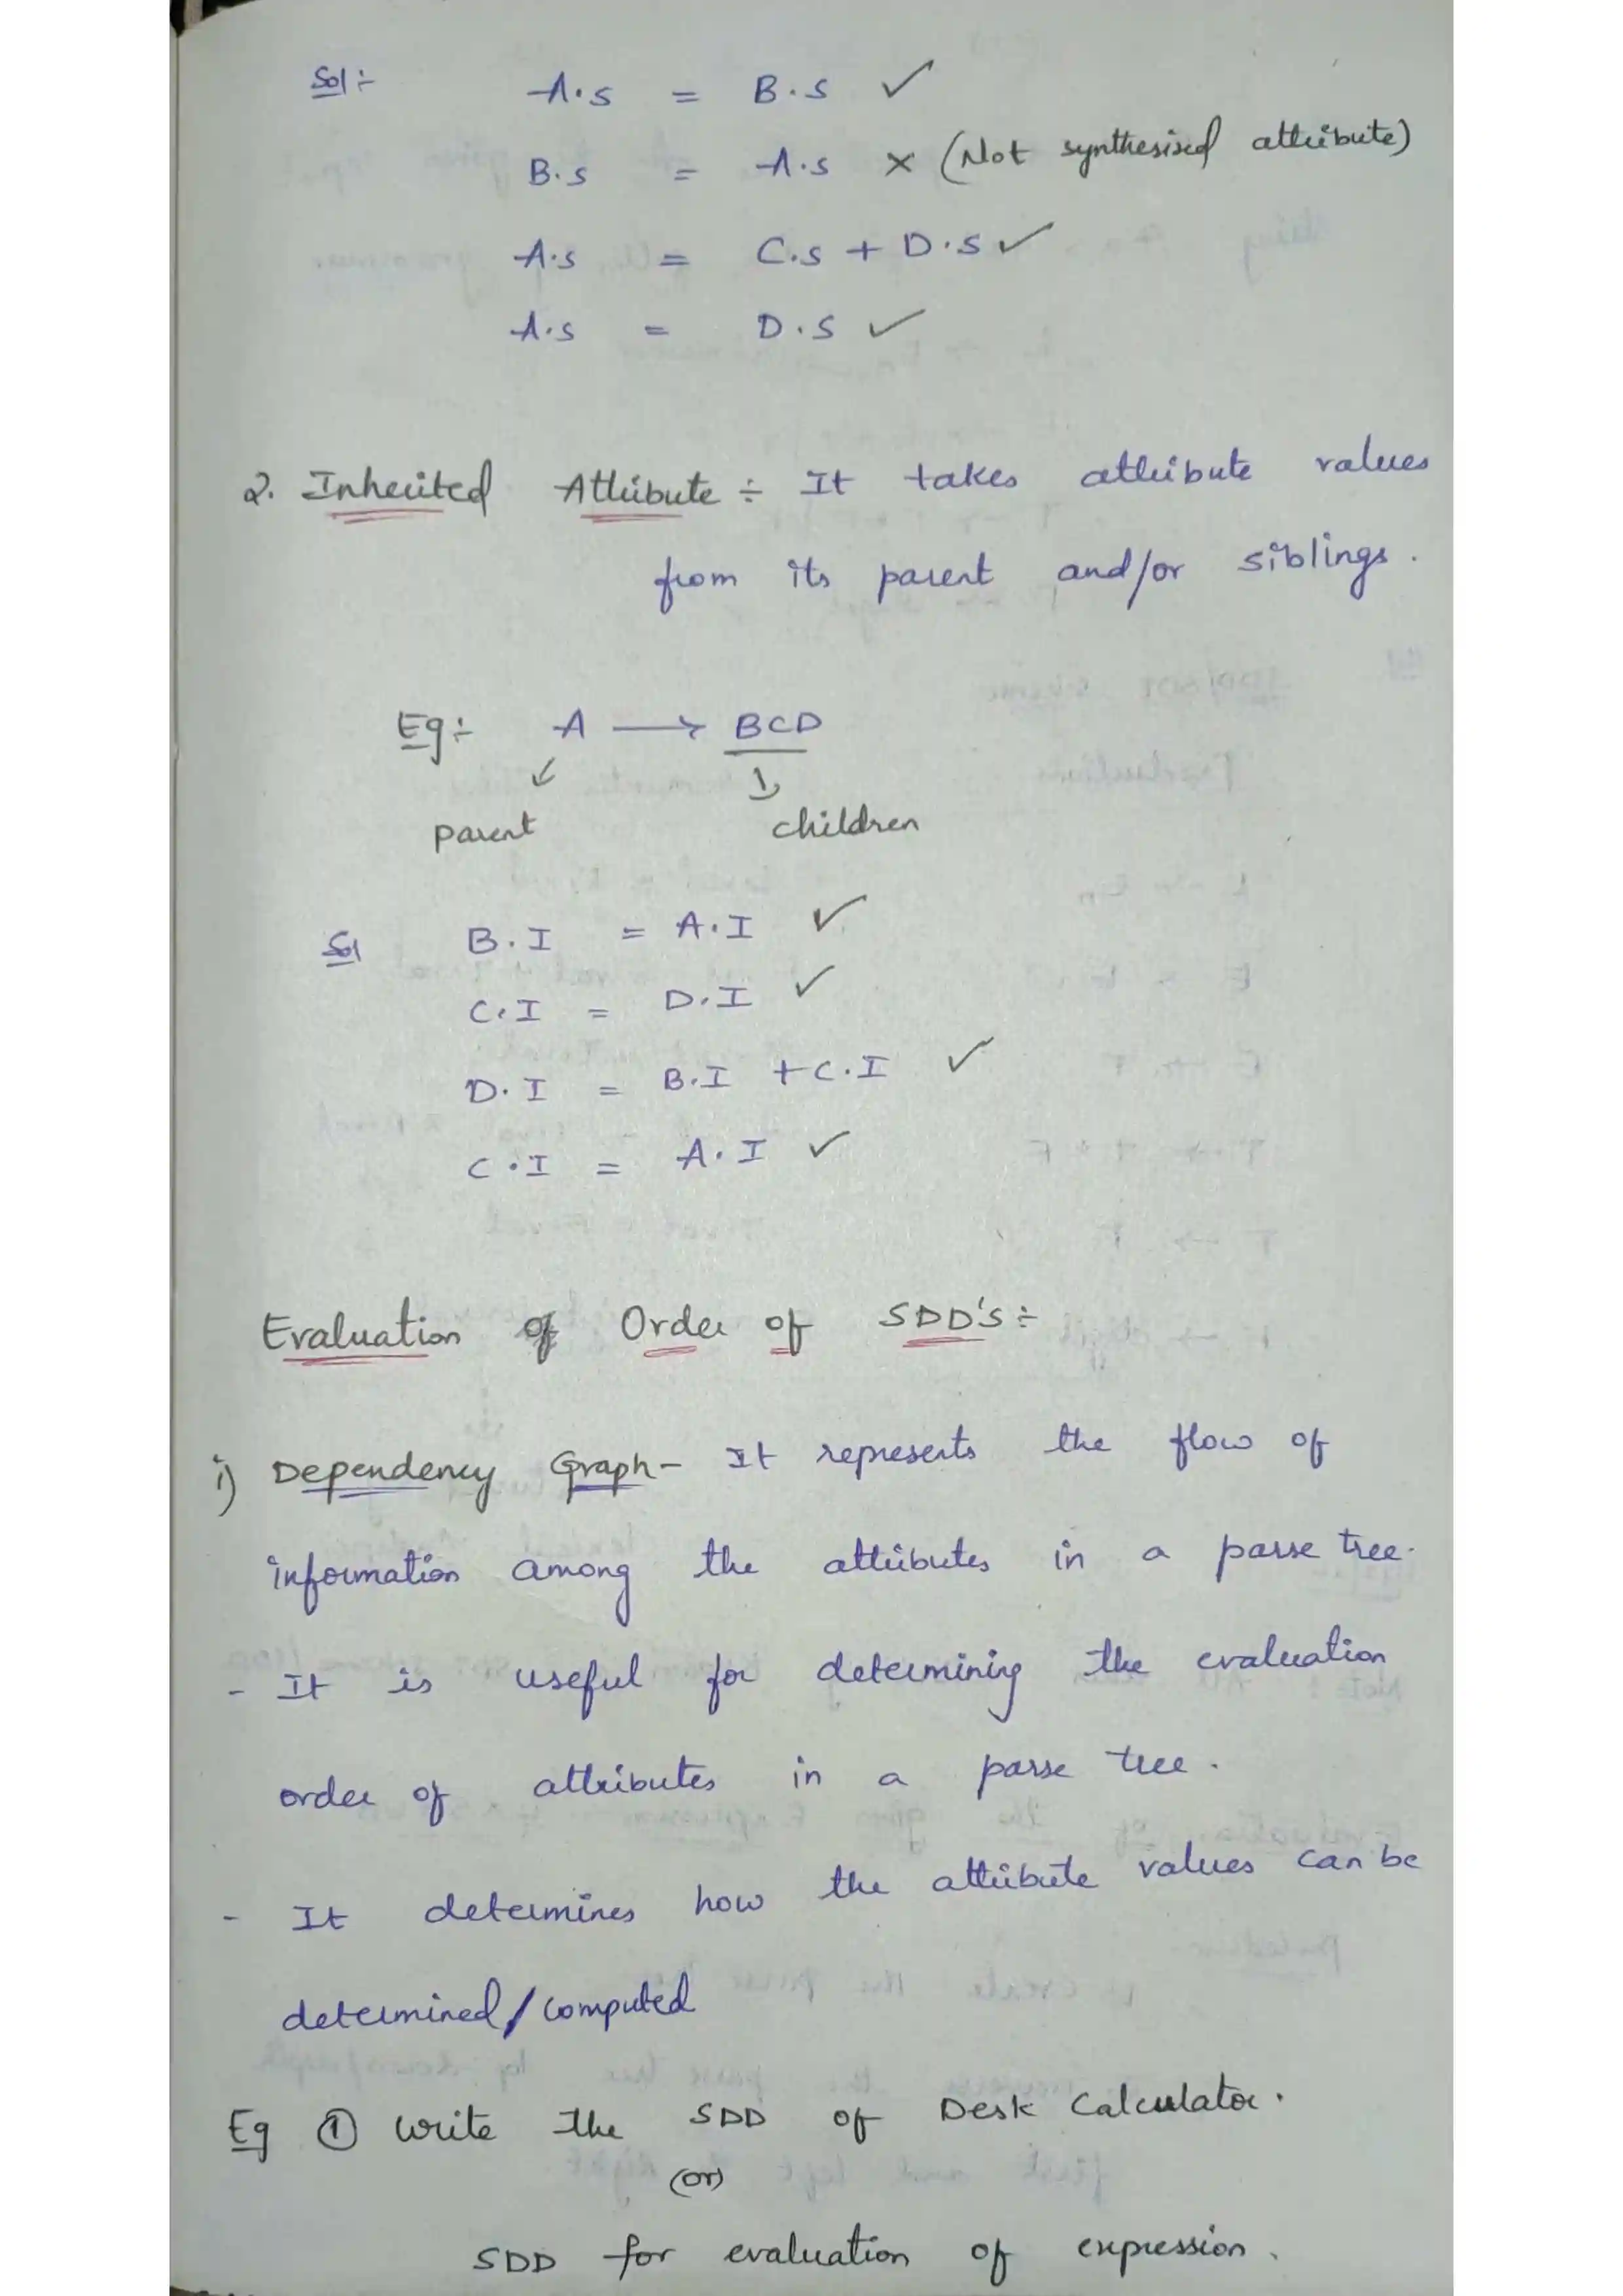 Sol:-
A.s = B.s ✓
B.s = A.s × (Not synthesised attribute)
A.s = C.s + D.s ✓
A.s = D.s ✓
2. Inherited Attribute :- It takes attribute values
from its parent and/or siblings.
Eg:- A → BCD
parent children
Sol B.I = A.I ✓
C.I = D.I ✓
D.I = B.I + C.I ✓
C.I = A.I ✓
Evaluation of Order of SDD's :-
i) Dependency Graph - It represents the flow of
information among the attributes in a parse tree.
- It is useful for determining the evaluation
order of attributes in a parse tree.
- It determines how the attribute values can be
determined/computed
Eg ① Write the SDD of Desk Calculator.
(or)
SDD for evaluation of expression.